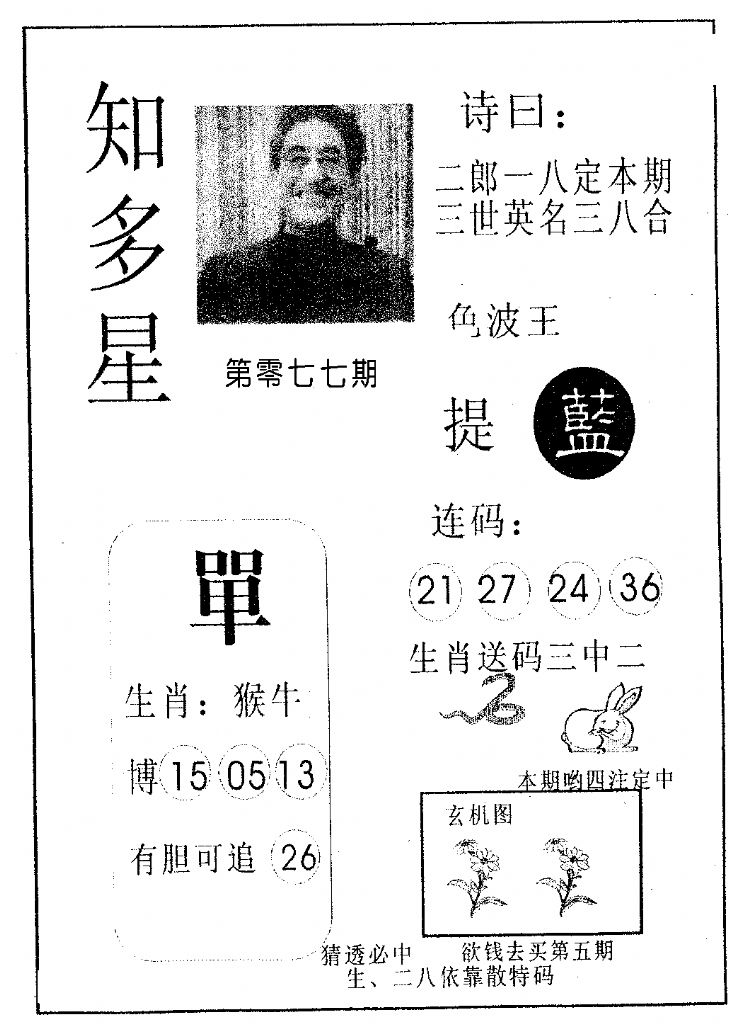 知多星
第零七七期
诗曰：
二郎一八定本期
三世英名三八合
色波王
提 藍
连码：
21 27 24 36
生肖送码三中二
本期哟四注定中
玄机图
單
生肖：猴牛
博 15 05 13
有胆可追 26
猜透必中 欲钱去买第五期
生、二八依靠散特码